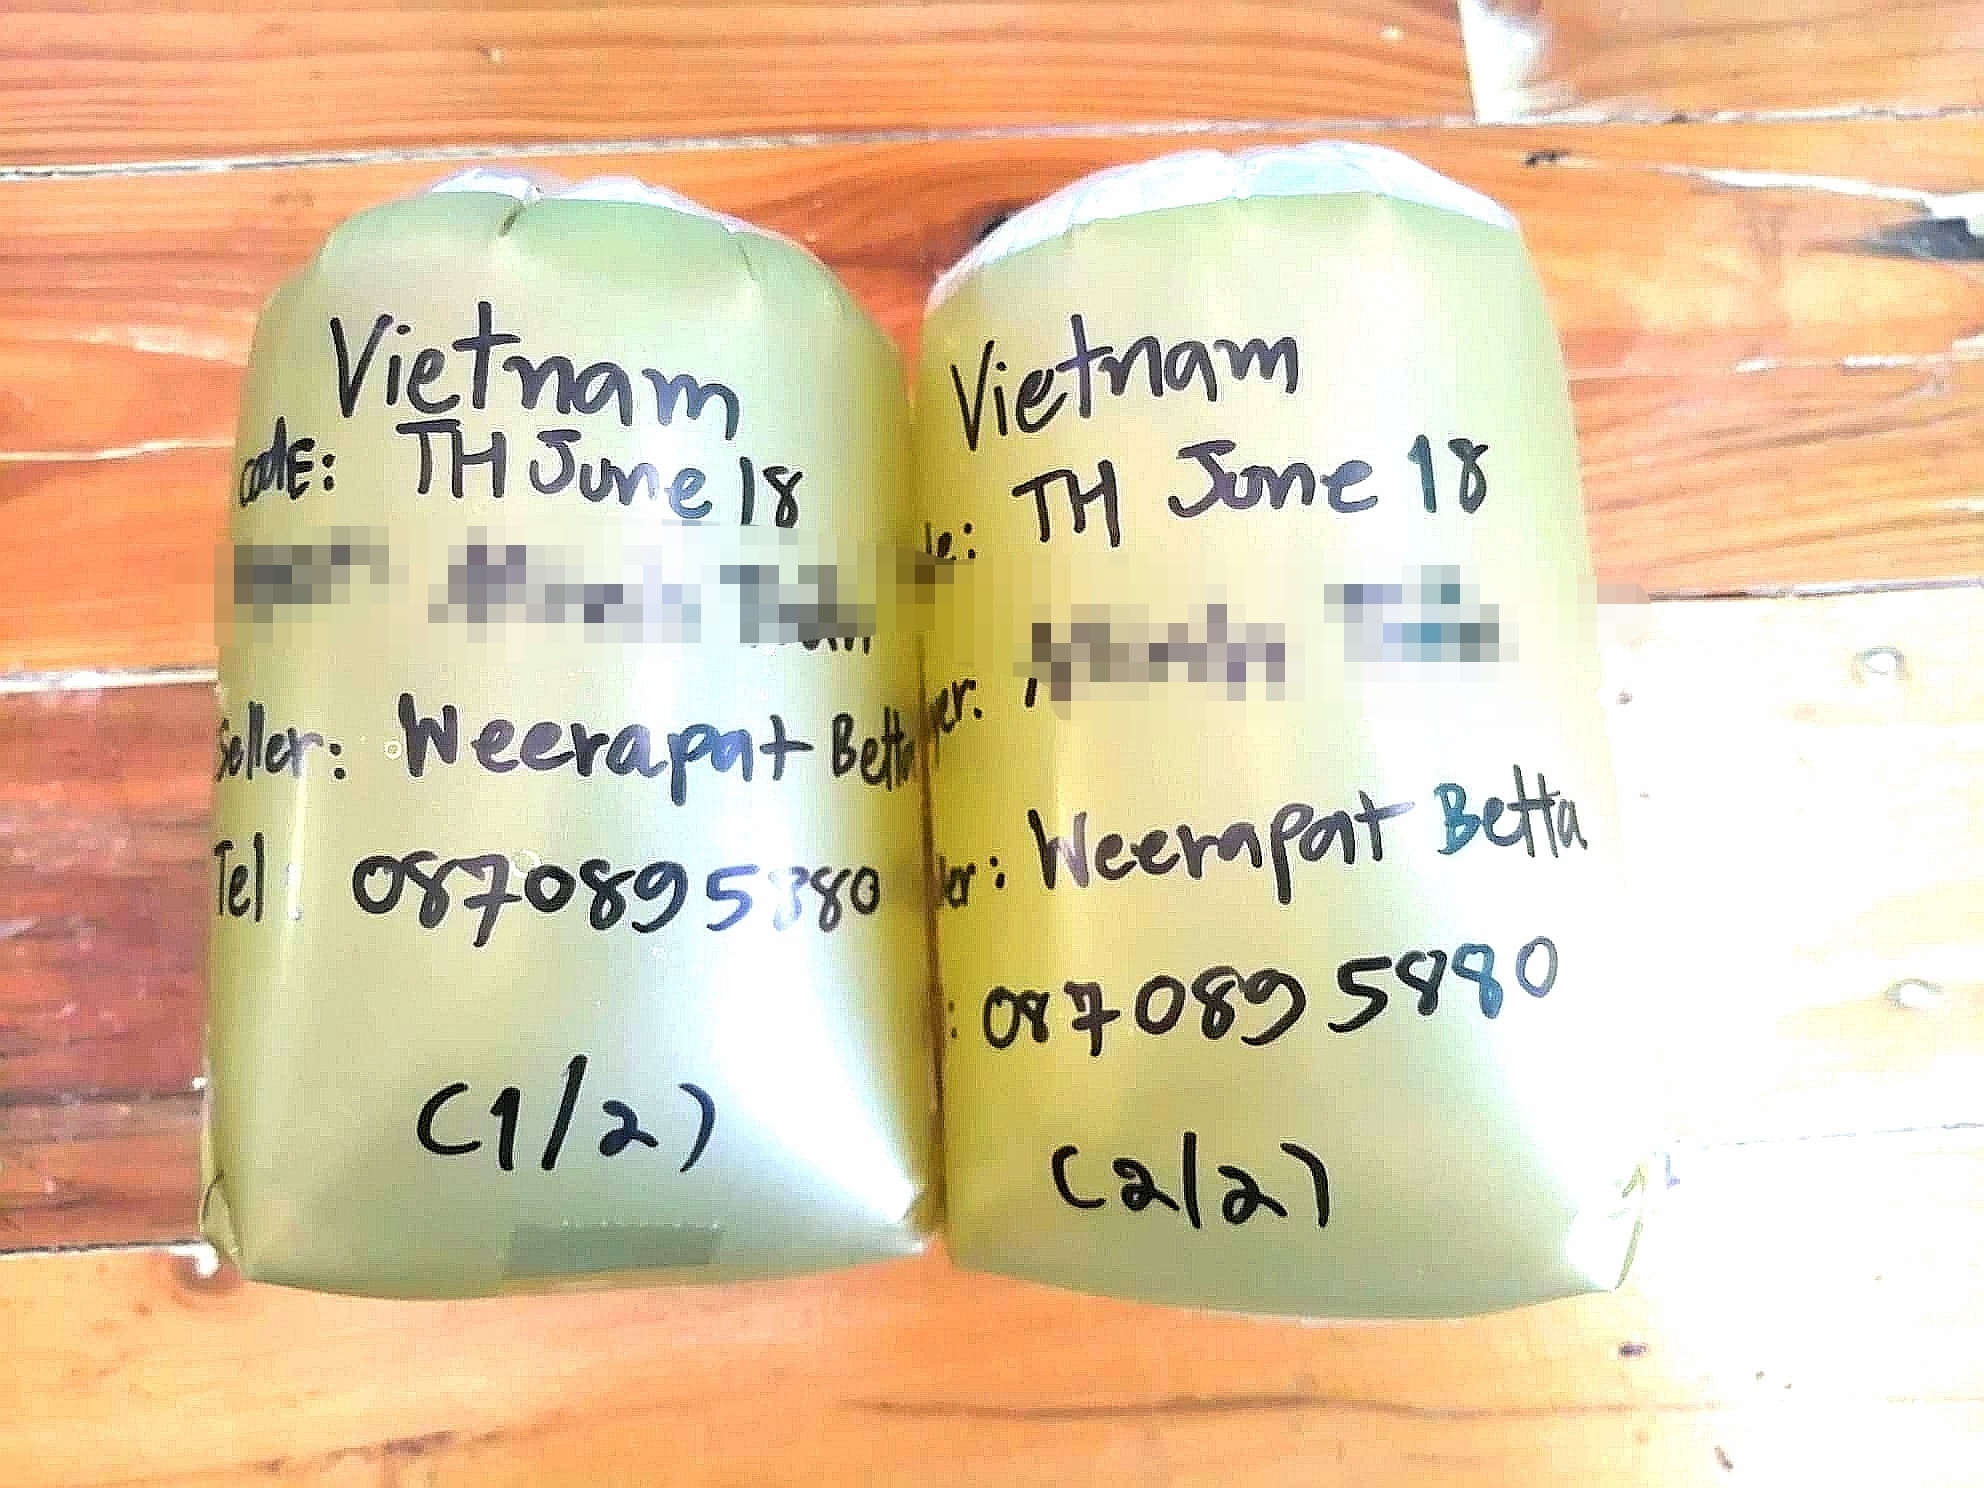 Vietnam
codE: TH June 18
Seller: Weerapat Betta
Tel : 0870895880
(1/2)
Vietnam
TH June 18
Weerapat Betta
: 0870895880
(2/2)